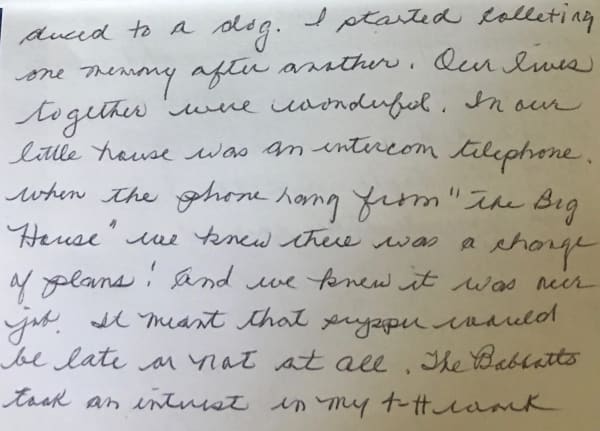 duced to a dog. I started colleting
one memory after another. Our lives
together were wonderful. In our
little house was an intercom telephone.
when the phone from "The Big
House" we knew there was a change
of plans! And we knew it was our
job. It meant that supper would
be late or not at all. The
took an interest in my 4-H work